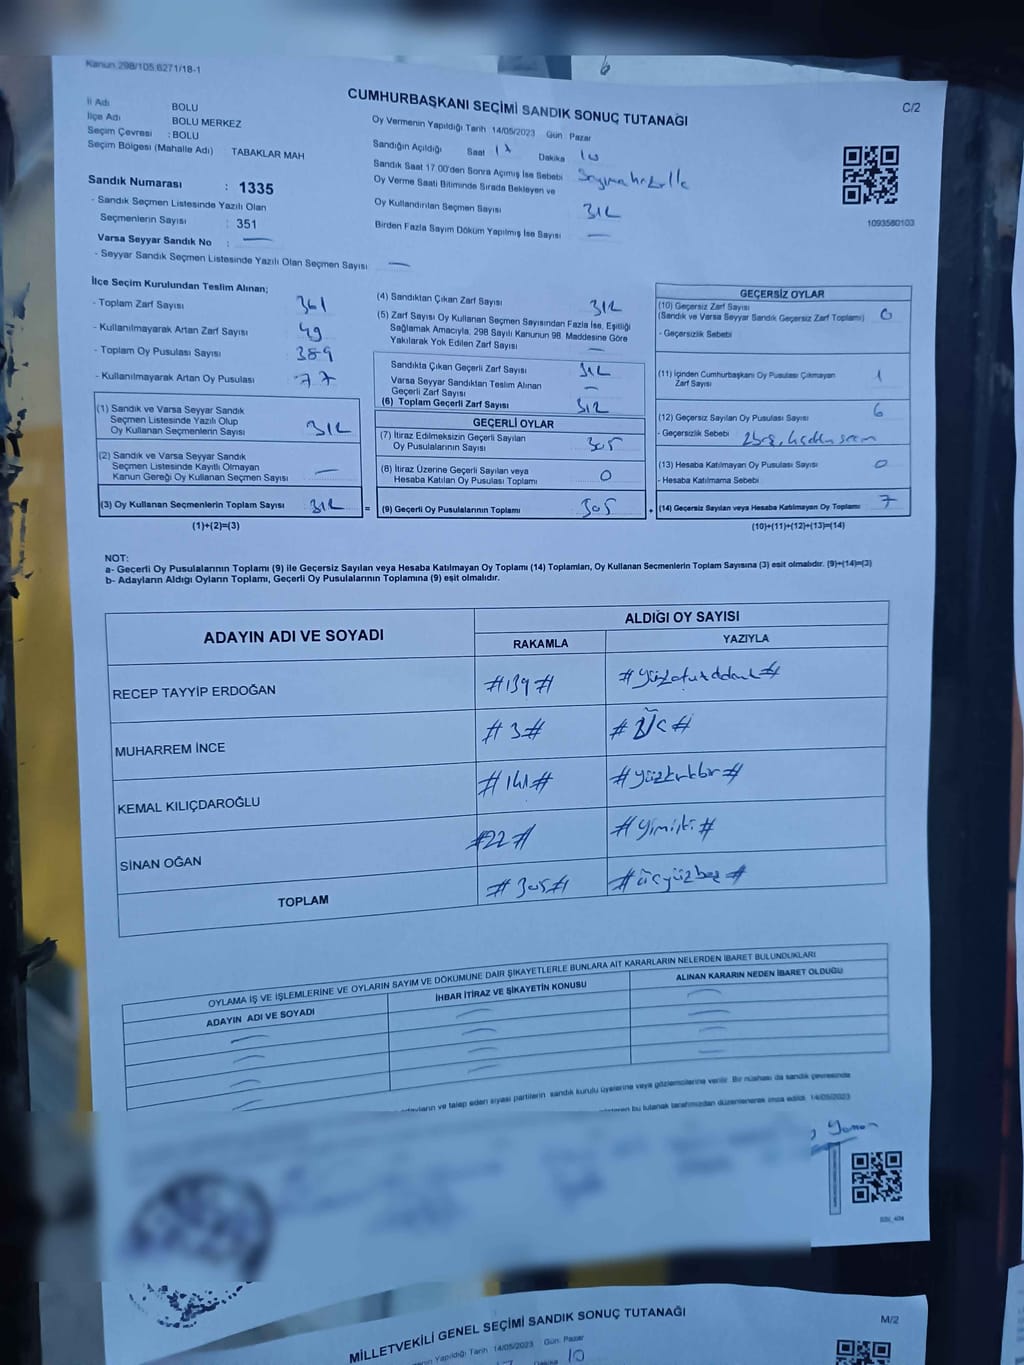 Kanun 298/105 6271/18-1
CUMHURBAŞKANI SEÇİMİ SANDIK SONUÇ TUTANAĞI
C/2
İl Adı BOLU
İlçe Adı BOLU MERKEZ
Seçim Çevresi : BOLU
Seçim Bölgesi (Mahalle Adı) TABAKLAR MAH
Oy Vermenin Yapıldığı Tarih 14/05/2023 Gün Pazar
Sandığın Açıldığı Saat 17 Dakika 10
Sandık Saat 17.00'den Sonra Açımış İse Sebebi
Oy Verme Saati Bitiminde Sırada Bekleyen ve
Oy Kullandırılan Seçmen Sayısı 312
Birden Fazla Sayım Döküm Yapılmış İse Sayısı —
1093580103
Sandık Numarası : 1335
- Sandık Seçmen Listesinde Yazılı Olan
Seçmenlerin Sayısı : 351
Varsa Seyyar Sandık No : —
- Seyyar Sandık Seçmen Listesinde Yazılı Olan Seçmen Sayısı —
İlçe Seçim Kurulundan Teslim Alınan;
- Toplam Zarf Sayısı 361
- Kullanılmayarak Artan Zarf Sayısı 49
- Toplam Oy Pusulası Sayısı 389
- Kullanılmayarak Artan Oy Pusulası 77
(1) Sandık ve Varsa Seyyar Sandık
Seçmen Listesinde Yazılı Olup
Oy Kullanan Seçmenlerin Sayısı 312
(2) Sandık ve Varsa Seyyar Sandık
Seçmen Listesinde Kayıtlı Olmayan
Kanun Gereği Oy Kullanan Seçmen Sayısı —
(3) Oy Kullanan Seçmenlerin Toplam Sayısı 312 =
(1)+(2)=(3)
(4) Sandıktan Çıkan Zarf Sayısı 312
(5) Zarf Sayısı Oy Kullanan Seçmen Sayısından Fazla İse, Eşitliği
Sağlamak Amacıyla, 298 Sayılı Kanunun 98. Maddesine Göre
Yakılarak Yok Edilen Zarf Sayısı —
Sandıkta Çıkan Geçerli Zarf Sayısı 312
Varsa Seyyar Sandıktan Teslim Alınan
Geçerli Zarf Sayısı —
(6) Toplam Geçerli Zarf Sayısı 312
GEÇERLİ OYLAR
(7) İtiraz Edilmeksizin Geçerli Sayılan
Oy Pusulalarının Sayısı 305
(8) İtiraz Üzerine Geçerli Sayılan veya
Hesaba Katılan Oy Pusulası Toplamı 0
(9) Geçerli Oy Pusulalarının Toplamı 305 +
GEÇERSİZ OYLAR
(10) Geçersiz Zarf Sayısı
(Sandık ve Varsa Seyyar Sandık Geçersiz Zarf Toplamı) 0
- Geçersizlik Sebebi
(11) İçinden Cumhurbaşkanı Oy Pusulası Çıkmayan
Zarf Sayısı 1
(12) Geçersiz Sayılan Oy Pusulası Sayısı 6
- Geçersizlik Sebebi
(13) Hesaba Katılmayan Oy Pusulası Sayısı 0
- Hesaba Katılmama Sebebi
(14) Geçersiz Sayılan veya Hesaba Katılmayan Oy Toplamı 7
(10)+(11)+(12)+(13)=(14)
NOT:
a- Gecerli Oy Pusulalarının Toplamı (9) ile Geçersiz Sayılan veya Hesaba Katılmayan Oy Toplamı (14) Toplamları, Oy Kullanan Seçmenlerin Toplam Sayısına (3) eşit olmalıdır. (9)+(14)=(3)
b- Adayların Aldığı Oyların Toplamı, Geçerli Oy Pusulalarının Toplamına (9) eşit olmalıdır.
ADAYIN ADI VE SOYADI
ALDIĞI OY SAYISI
RAKAMLA YAZIYLA
RECEP TAYYİP ERDOĞAN #139# #yüzotuzdokuz#
MUHARREM İNCE #3# #Üç#
KEMAL KILIÇDAROĞLU #141# #yüzkırkbir#
SİNAN OĞAN #22# #yirmiiki#
TOPLAM #305# #üçyüzbeş#
OYLAMA İŞ VE İŞLEMLERİNE VE OYLARIN SAYIM VE DÖKÜMÜNE DAİR ŞİKAYETLERLE BUNLARA AİT KARARLARIN NELERDEN İBARET BULUNDUKLARI
ADAYIN ADI VE SOYADI İHBAR İTİRAZ VE ŞİKAYETİN KONUSU ALINAN KARARIN NEDEN İBARET OLDUĞU
adayların ve talep eden siyasi partilerin sandık kurulu üyelerine veya gözlemcilerine verilir. Bir nüshası da sandık çevresinde
bu tutanak tarafımızdan düzenlenerek imza edildi. 14/05/2023
MİLLETVEKİLİ GENEL SEÇİMİ SANDIK SONUÇ TUTANAĞI
M/2
Yapıldığı Tarih 14/05/2023 Gün Pazar
Dakika 10